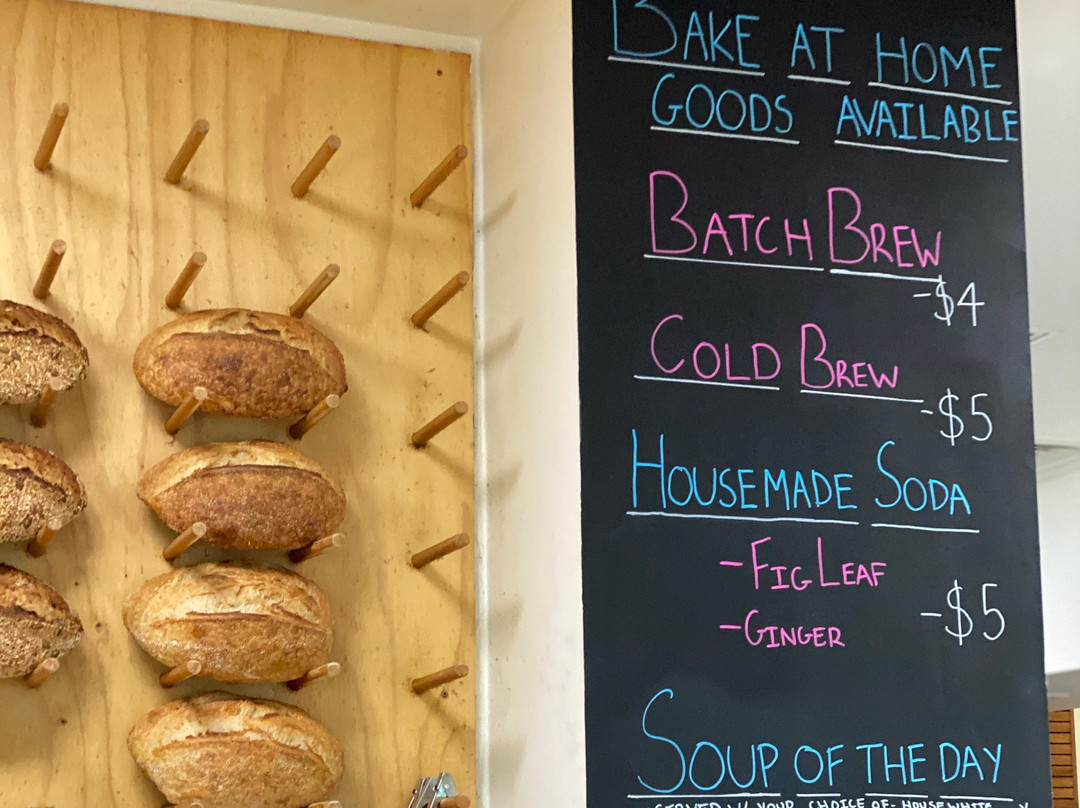 BAKE AT HOME
GOODS AVAILABLE
BATCH BREW
-$4
COLD BREW
-$5
HOUSEMADE SODA
-FIG LEAF
-GINGER
-$5
SOUP OF THE DAY
SERVED W/ YOUR CHOICE OF- HOUSE WHITE